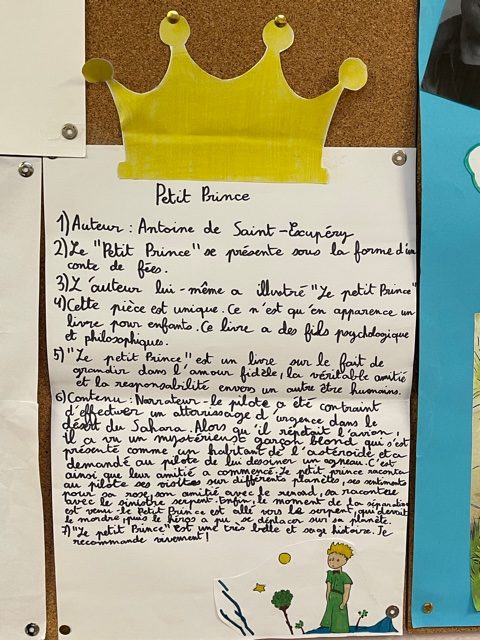 Petit Prince
1) Auteur : Antoine de Saint-Exupéry
2) Le "Petit Prince" se présente sous la forme d'un
conte de fées.
3) L'auteur lui-même a illustré "Le petit Prince"
4) Cette pièce est unique. Ce n'est qu'en apparence un
livre pour enfants. Ce livre a des fils psychologique
et philosophiques.
5) "Le petit Prince" est un livre sur le fait de
grandir dans l'amour fidèle, la véritable amitié
et la responsabilité envers un autre être humains.
6) Contenu : Narrateur - le pilote a été contraint
d'effectuer un atterissage d'urgence dans le
désert du Sahara. Alors qu'il répétait l'avion,
il a vu un mystérieux garçon blond qui s'est
présenté comme un habitant de l'astéroïde et a
demandé au pilote de lui dessiner un agneau. C'est
ainsi que leur amitié a commencé. Le petit prince raconta
au pilote ses visites sur différents planètes, ses sentiments
pour sa rose, son amitié avec le renard, sa rencontre
avec le sinistre serpent. Enfin, le moment de la séparation
est venu - le Petit Prince est allé vers le serpent, qui devait
le mordre, puis le héros a pu se déplacer sur sa planète.
7) "Le petit Prince" est une très belle et sage histoire. Je
recommande vivement !